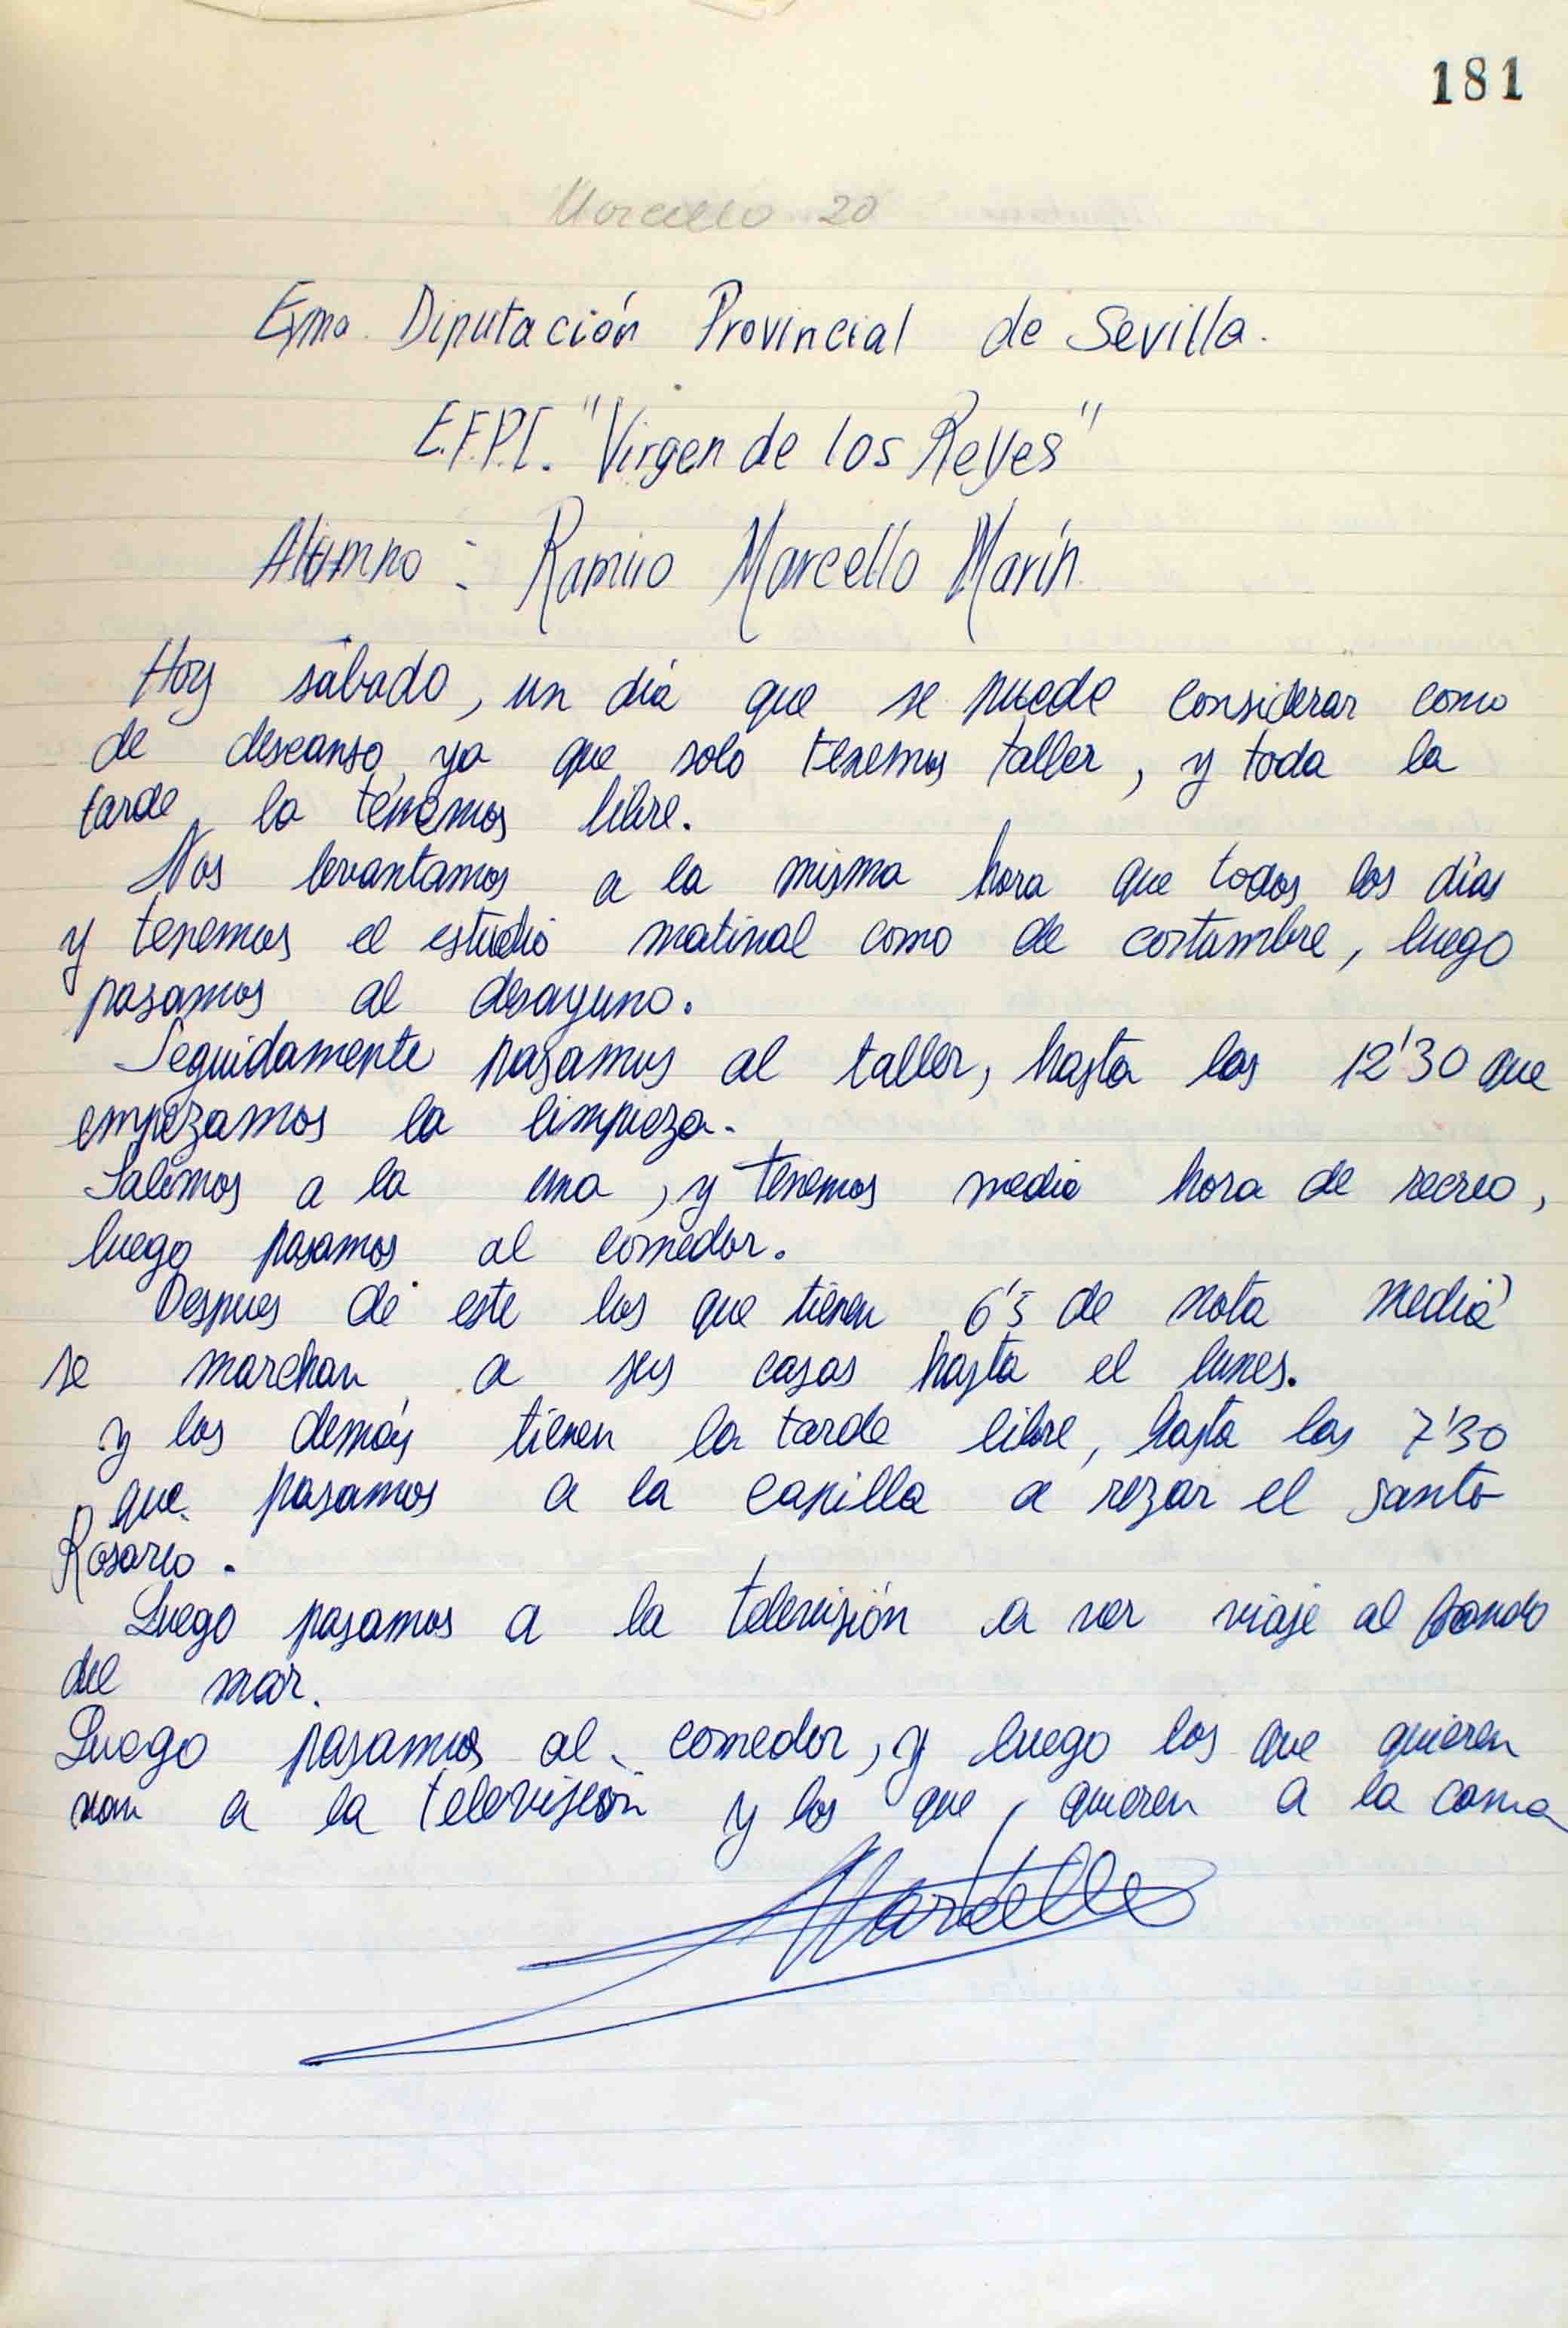 181
Morcillo 20
Exmo. Diputación Provincial de Sevilla.
E.F.P.I. "Virgen de los Reyes"
Alumno: Ramiro Marcello Marín.
Hoy sábado, un día que se puede considerar como
de descanso, ya que solo tenemos taller, y toda la
tarde la tenemos libre.
Nos levantamos a la misma hora que todos los días
y tenemos el estudio matinal como de costumbre, luego
pasamos al desayuno.
Seguidamente pasamos al taller, hasta las 12'30 que
empezamos la limpieza.
Salimos a la una, y tenemos media hora de recreo,
luego pasamos al comedor.
Despues de este los que tienen 6'5 de nota media
se marchan a sus casas hasta el lunes.
y los demás tienen la tarde libre, hasta las 7'30
que pasamos a la capilla a rezar el santo
Rosario.
Luego pasamos a la televisión a ver viaje al fondo
del mar.
Luego pasamos al comedor, y luego los que quieren
van a la televisión y los que quieren a la cama